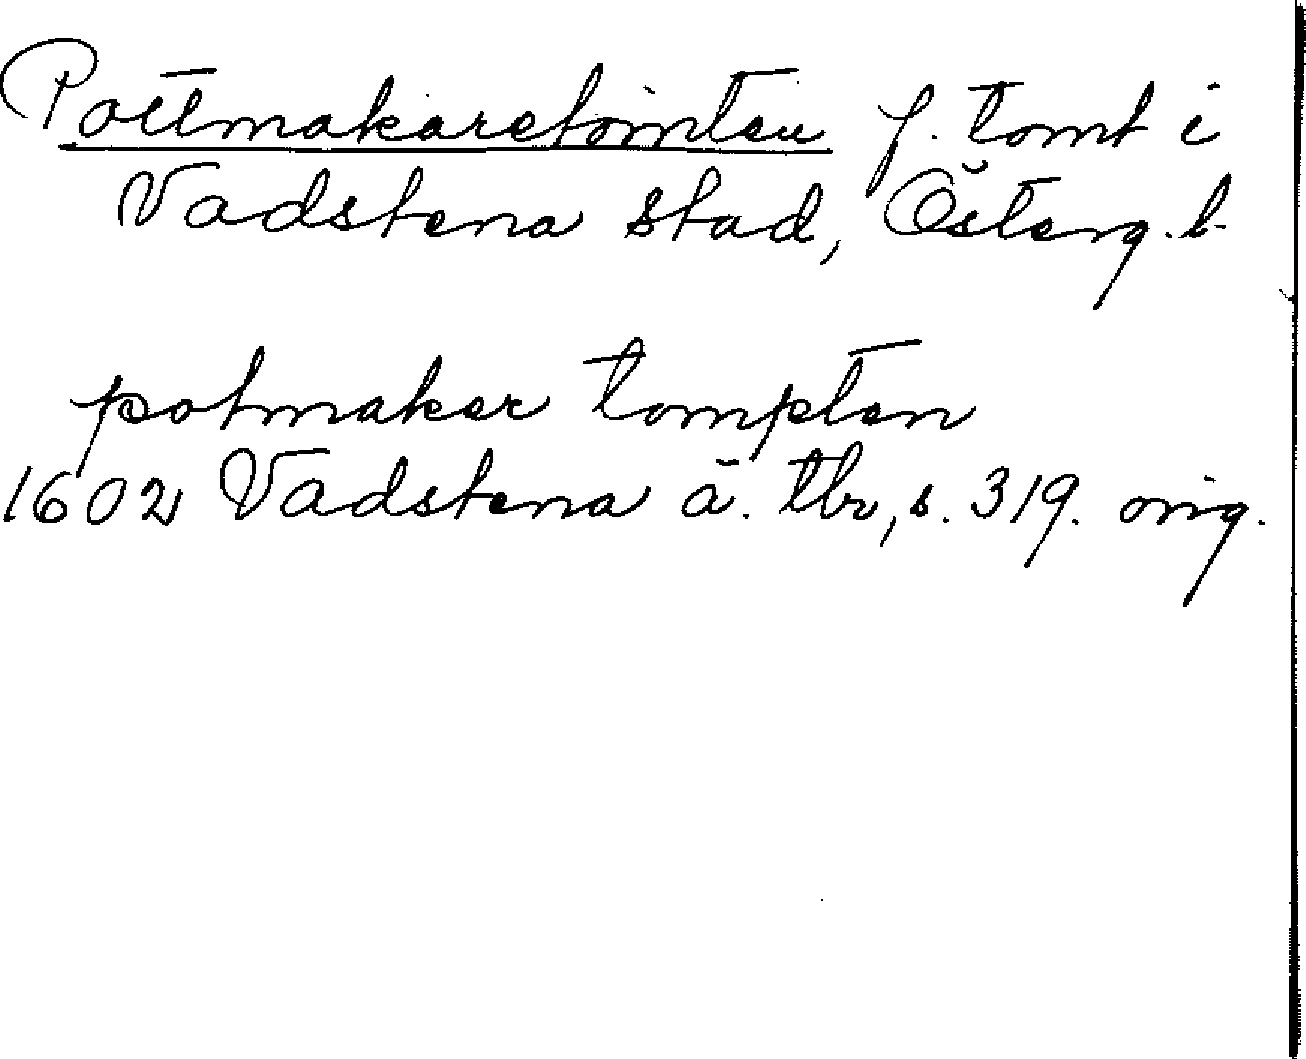 Pottmakaretomten f. tomt i
Vadstena stad, Österg. l.
potmaker tompten
1602 Vadstena ä. tbr, s. 319. orig.